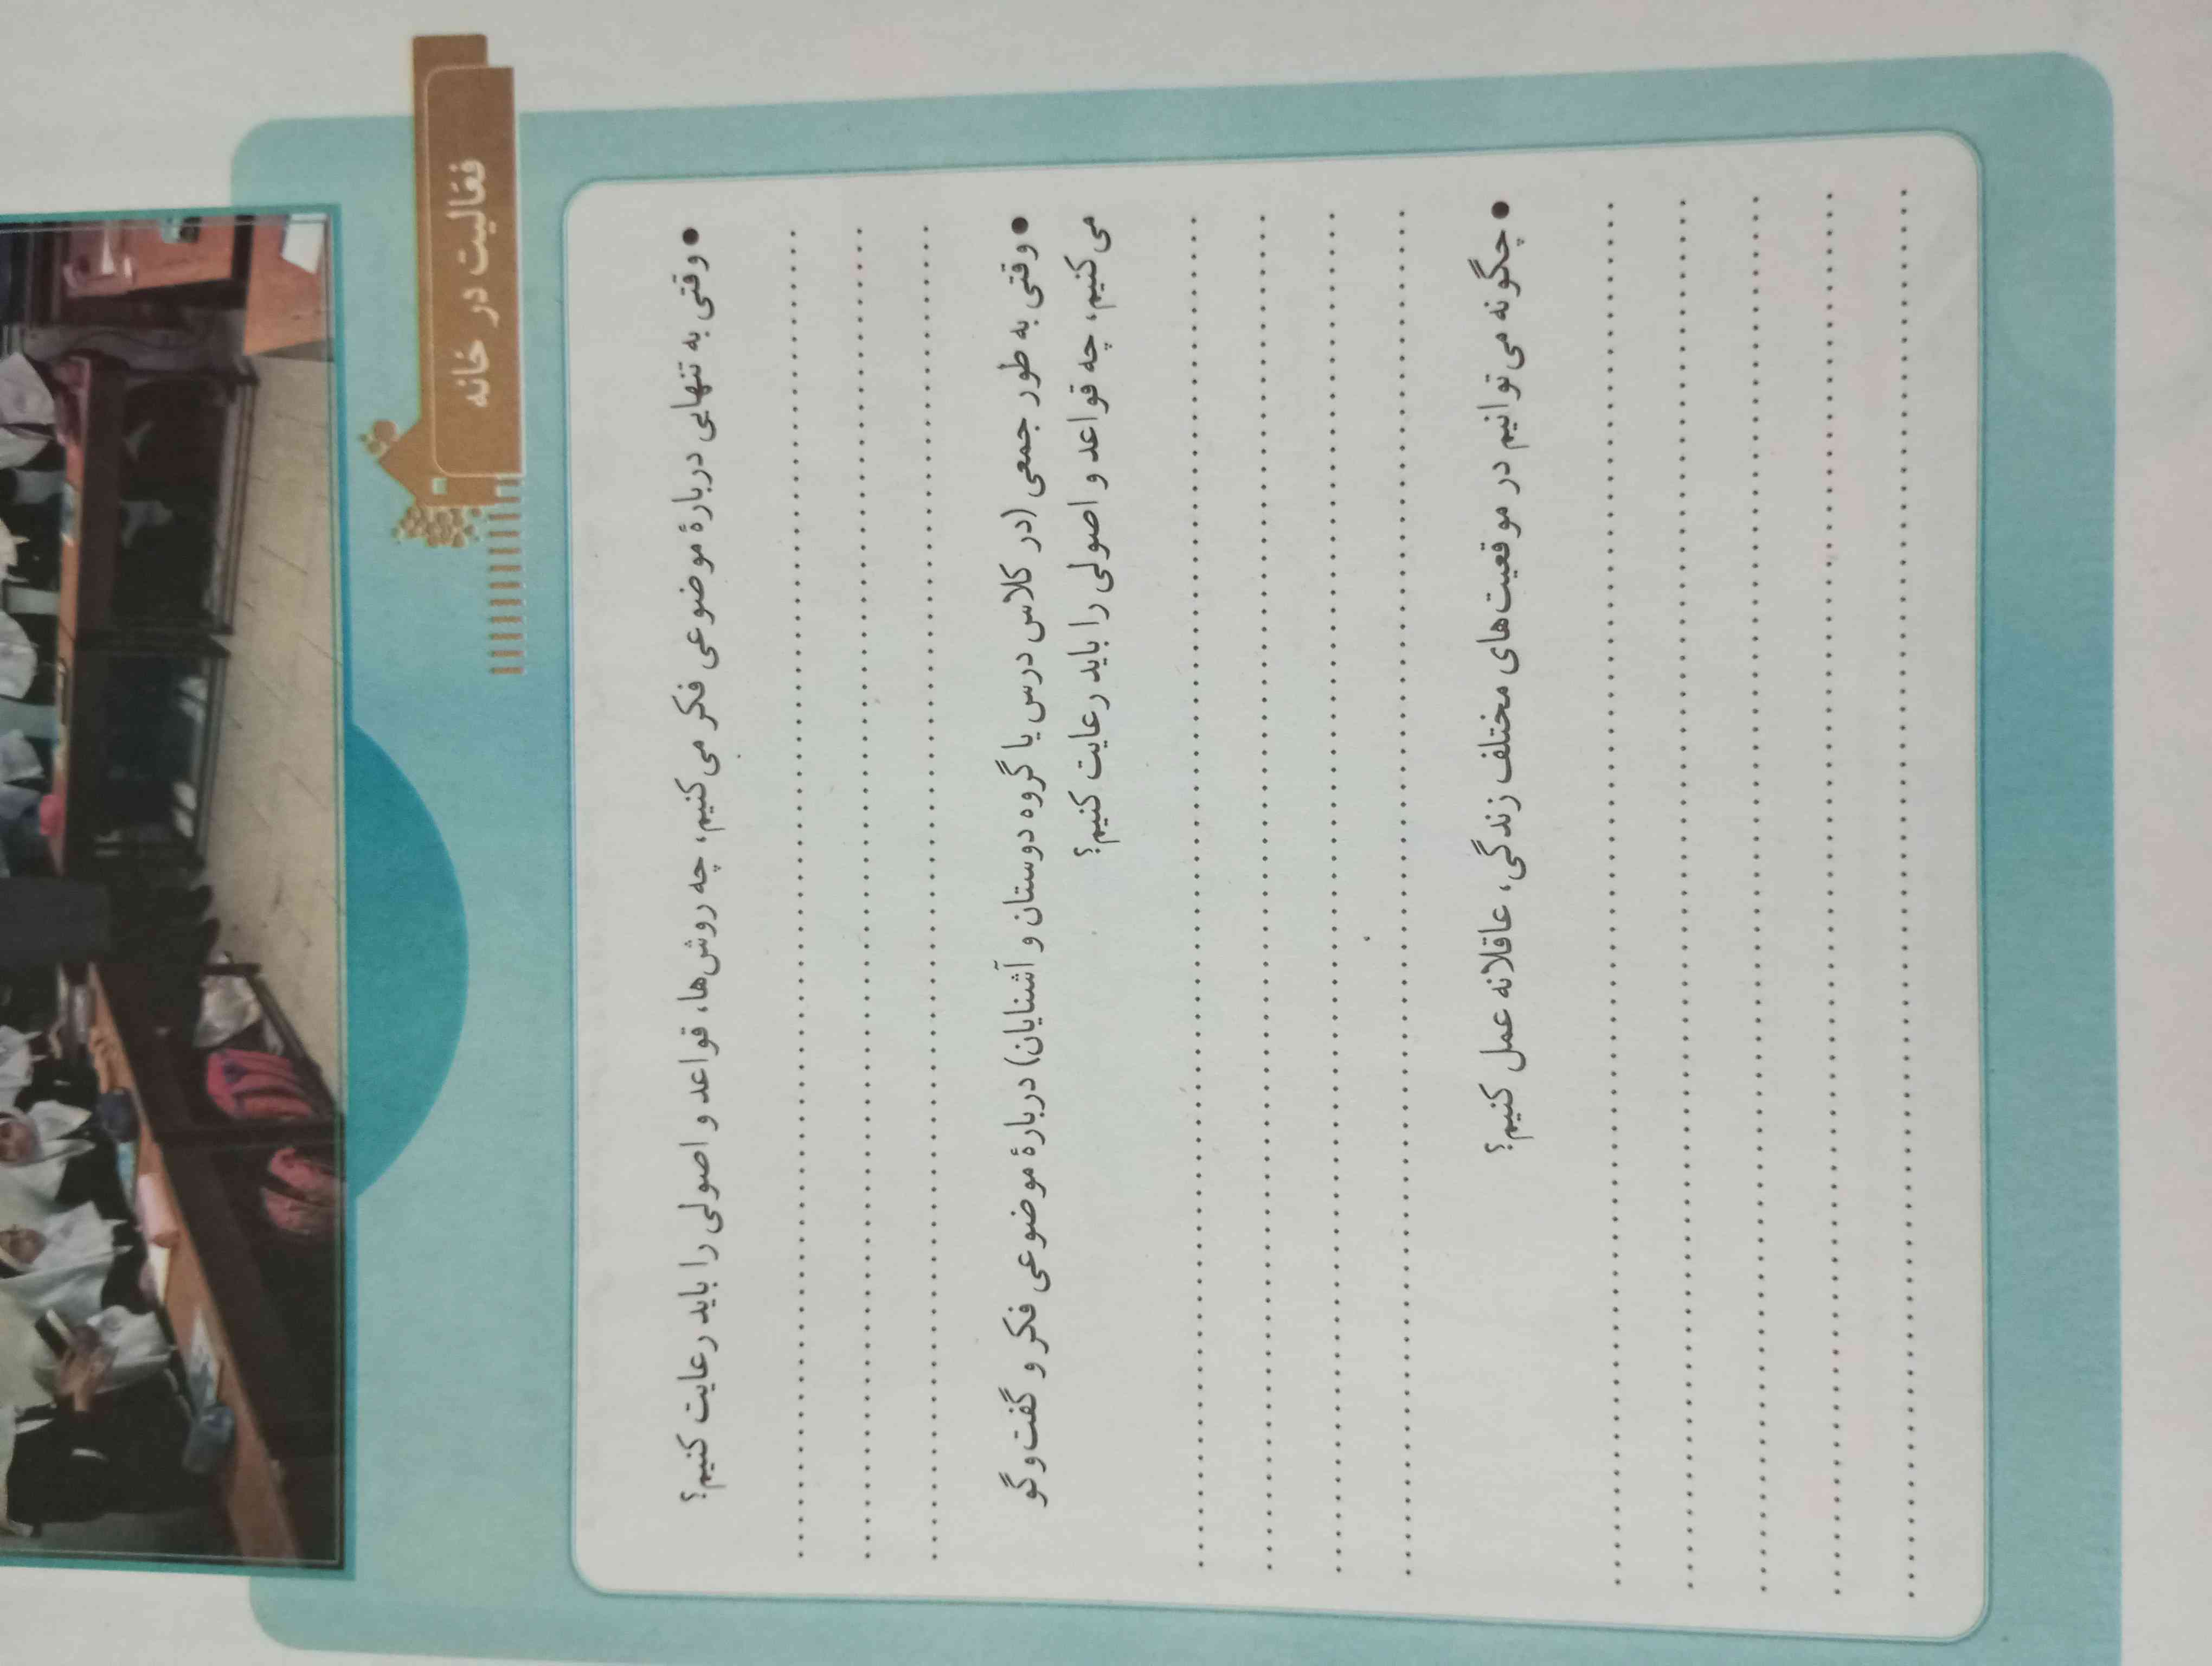 فعّالیت در خانه
● وقتی به تنهایی دربارهٔ موضوعی فکر می‌کنیم، چه روش‌ها، قواعد و اصولی را باید رعایت کنیم؟
● وقتی به طور جمعی (در کلاس درس یا گروه دوستان و آشنایان) دربارهٔ موضوعی فکر و گفت‌وگو
می‌کنیم، چه قواعد و اصولی را باید رعایت کنیم؟
● چگونه می‌توانیم در موقعیت‌های مختلف زندگی، عاقلانه عمل کنیم؟